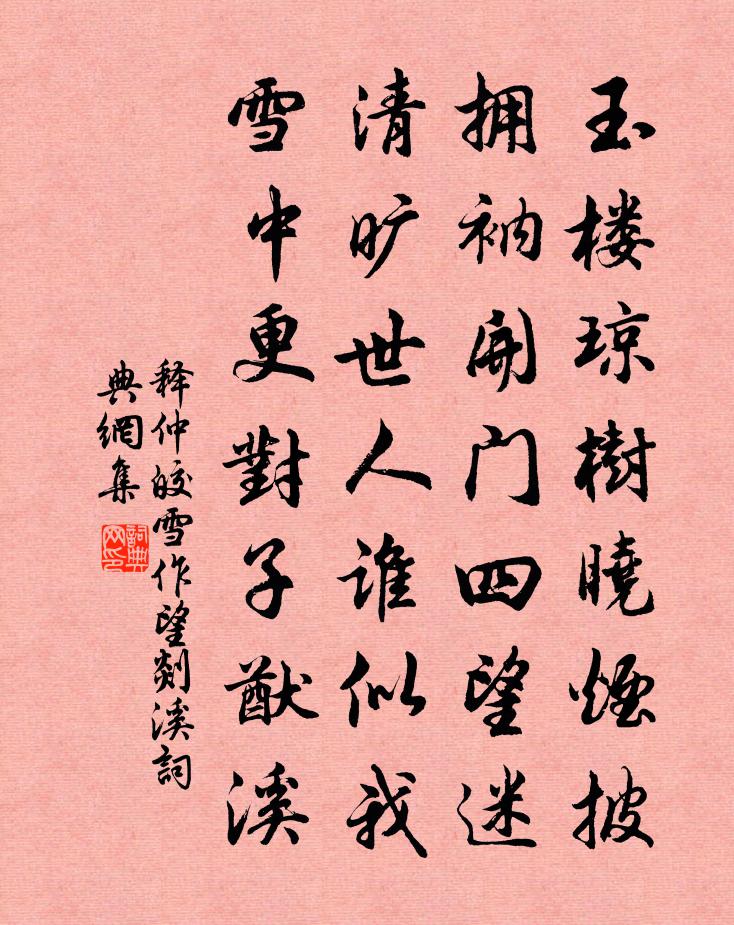 玉楼琼樹曉煙披
拥衲開门四望迷
清旷世人谁似我
雪中更對子猷溪
释仲皎雪作望剡溪詞
典網集
詞典
网印